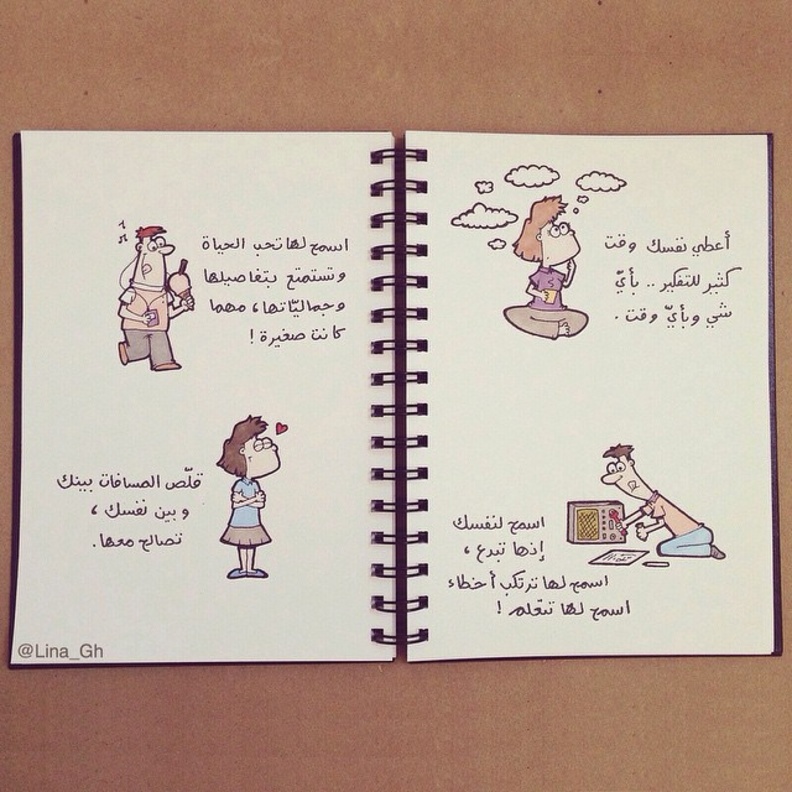 أعطي نفسك وقت
كثير للتفكير .. بأيّ
شي وبأيّ وقت .
اسمح لنفسك
إنها تبدع ،
اسمح لها ترتكب أخطاء
اسمح لها تتعلم !
اسمح لها تحب الحياة
وتستمتع بتفاصيلها
وجماليّاتها ، مهما
كانت صغيرة !
قلّص المسافات بينك
وبين نفسك ،
تصالح معها .
@Lina_Gh